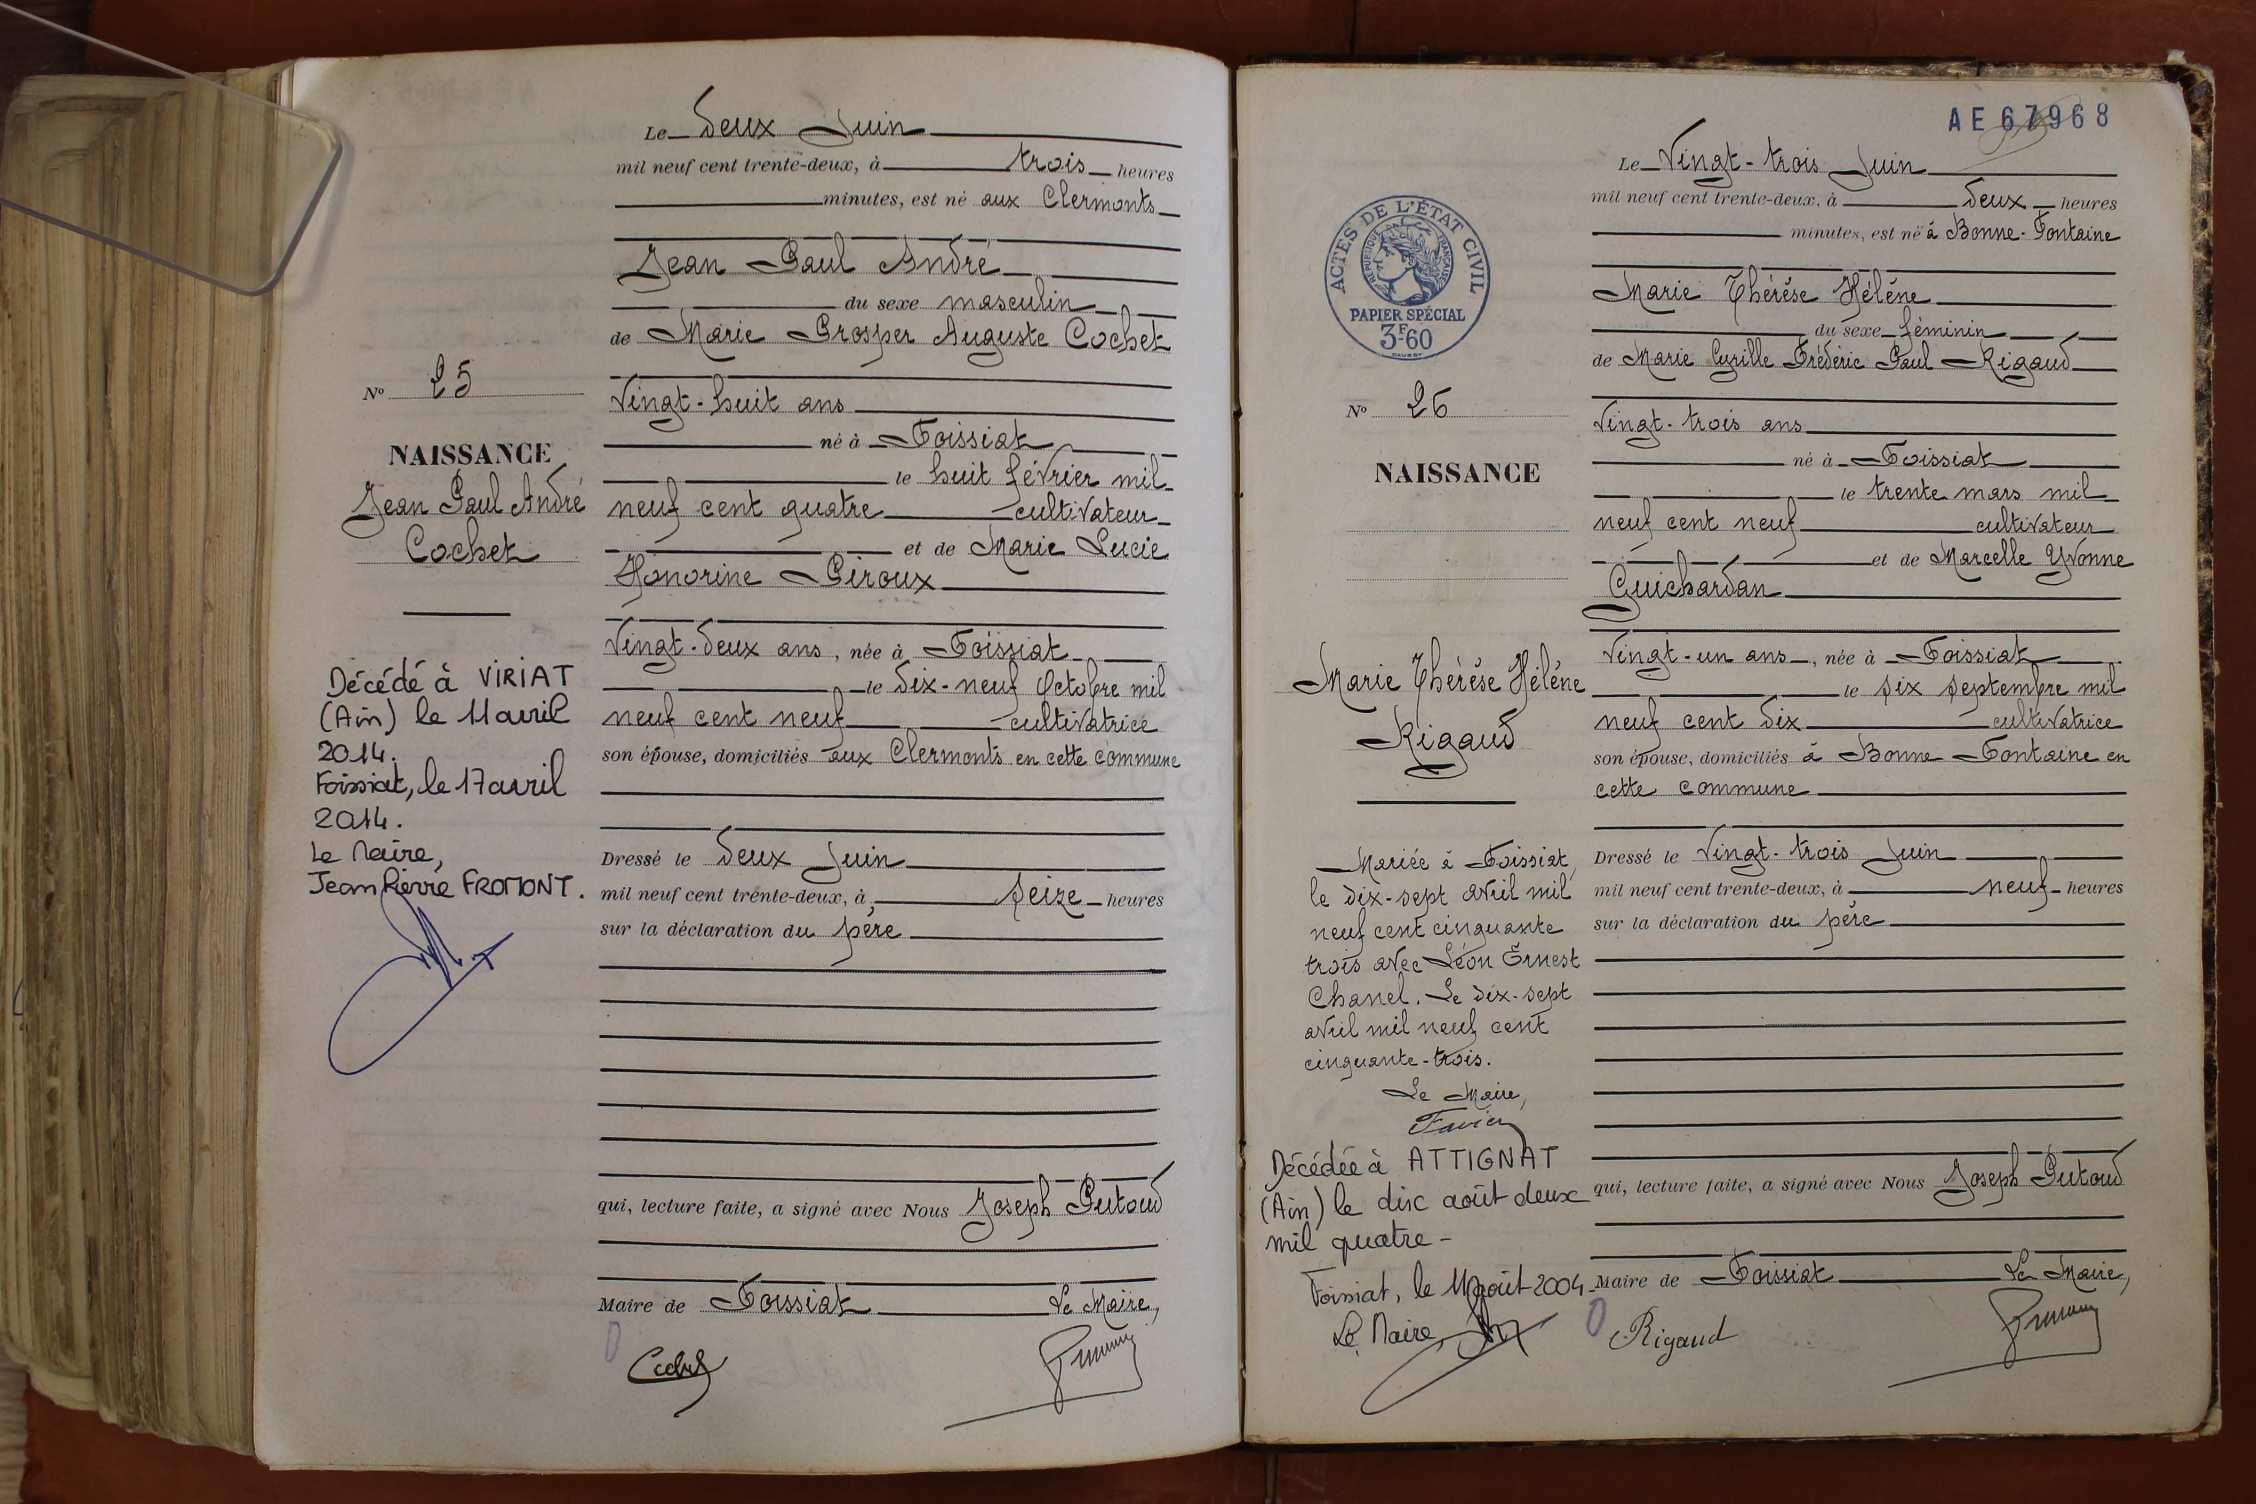 Le deux Juin
mil neuf cent trente-deux, à trois heures
minutes, est né aux Clermonts
Jean Paul André
du sexe masculin
de Marie Prosper Auguste Cochet
Vingt-huit ans
né à Foissiat
le huit février mil
neuf cent quatre cultivateur
et de Marie Lucie
Honorine Piroux
Vingt-deux ans, née à Foissiat
le dix-neuf Octobre mil
neuf cent neuf cultivatrice
son épouse, domiciliés aux Clermonts en cette commune
Dressé le deux Juin
mil neuf cent trente-deux, à seize heures
sur la déclaration du père
qui, lecture faite, a signé avec Nous Joseph Putoud
Maire de Foissiat Le Maire,
No 25
NAISSANCE
Jean Paul André
Cochet
Décédé à VIRIAT
(Ain) le 11 avril
2014.
Foissiat, le 17 avril
2014.
Le Maire,
Jean Pierre FROMONT.
AE 67968
Le Vingt-trois Juin
mil neuf cent trente-deux, à deux heures
minutes, est né à Bonne-Fontaine
Marie Thérèse Hélène
du sexe féminin
de Marie Cyrille Frédéric Paul Rigaud
Vingt-trois ans
né à Foissiat
le trente mars mil
neuf cent neuf cultivateur
et de Marcelle Yvonne
Guichardan
Vingt-un ans, née à Foissiat
le six septembre mil
neuf cent dix cultivatrice
son épouse, domiciliés à Bonne Fontaine en
cette commune
Dressé le Vingt-trois Juin
mil neuf cent trente-deux, à neuf heures
sur la déclaration du père
qui, lecture faite, a signé avec Nous Joseph Putoud
Maire de Foissiat Le Maire,
Rigaud
ACTES DE L'ÉTAT CIVIL
RÉPUBLIQUE FRANÇAISE
PAPIER SPÉCIAL
3F60
No 26
NAISSANCE
Marie Thérèse Hélène
Rigaud
Mariée à Foissiat,
le dix-sept avril mil
neuf cent cinquante
trois avec Léon Ernest
Chanel. Le dix-sept
avril mil neuf cent
cinquante-trois.
Le Maire,
Décédée à ATTIGNAT
(Ain) le dix août deux
mil quatre-
Foissiat, le 11 août 2004-
Le Maire,